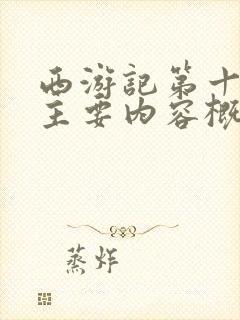 西游记第十
主要内容概
蒸炸